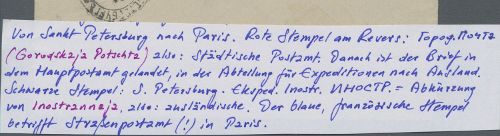 Von Sankt Petersburg nach Paris. Rote Stempel am Revers: Topog. Почта
(Gorodskaja Potschta) also: Städtische Postamt. Danach ist der Brief in
dem Hauptpostamt gelandet, in der Abteilung für Expeditionen nach Ausland.
Schwarze Stempel: S. Petersburg. Eksped. Inostr. ИНОСТР. = Abkürzung
von Inostrannaja, also: ausländische. Der blaue, französische Stempel
betrifft Straßenpostamt (!) in Paris.